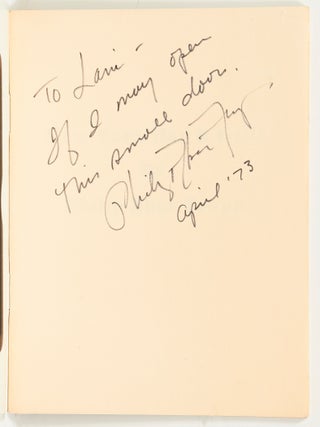 To Lani –
If I may open
this small door.
Philip
April '73